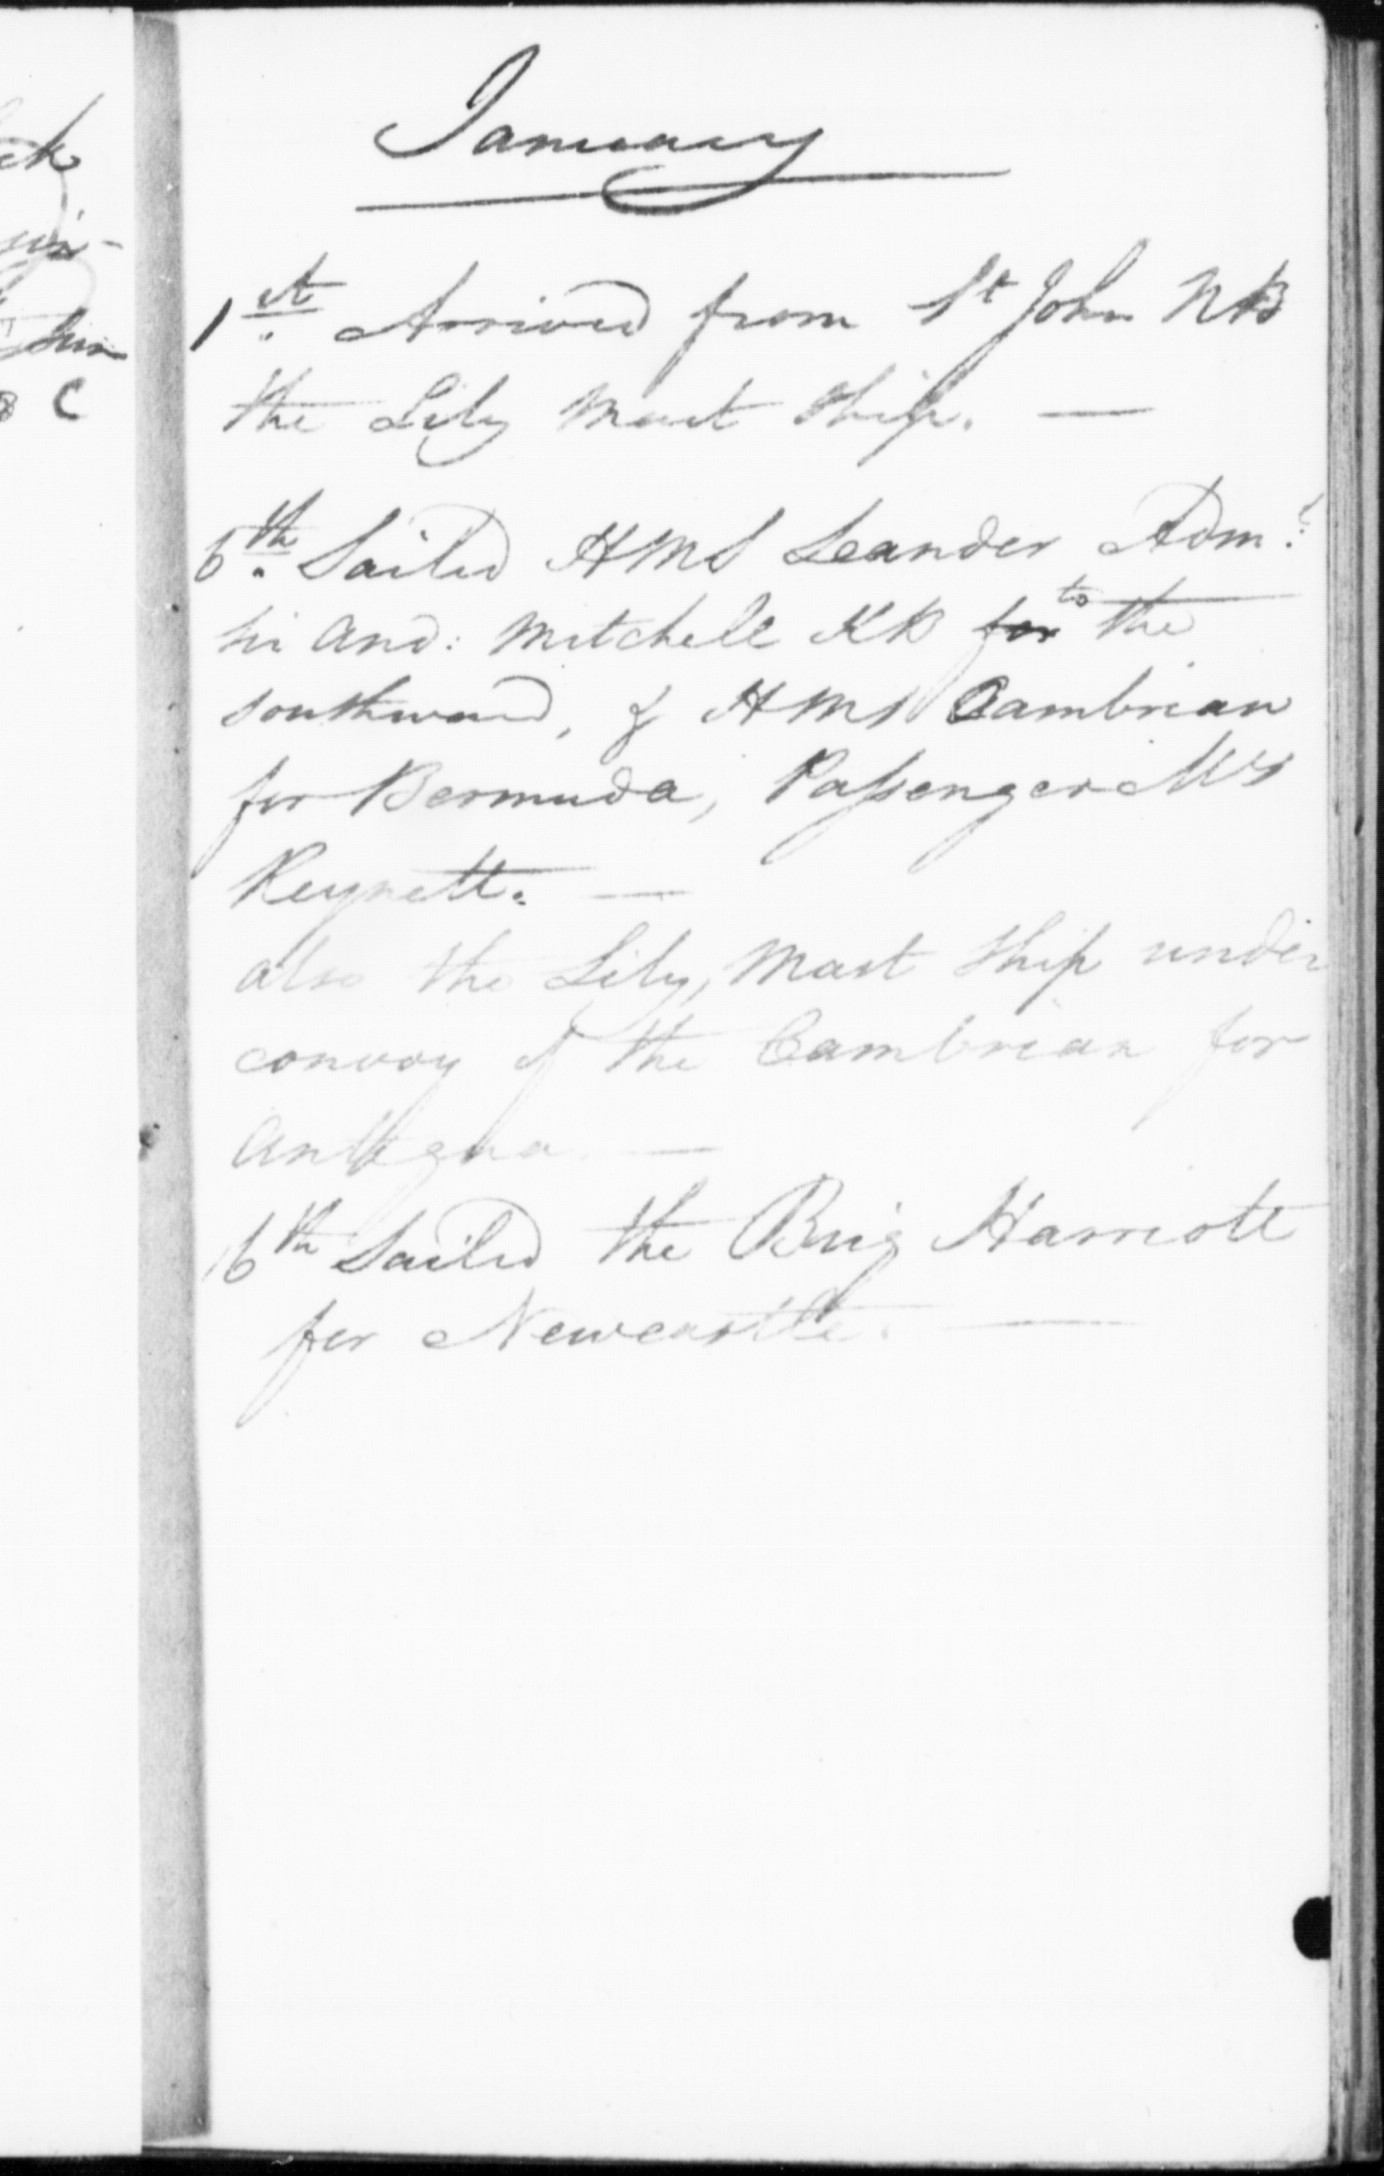 January
1st. Arrived from St John NB
the Lily Mast Ship. —
6th. Sailed HMS Leander Adm.l
Sir And: Mitchell KB for to the
southward, & HMS Cambrian
for Bermuda, Passenger Mrs
Reynett. —
also the Lily, Mast Ship under
convoy of the Cambrian for
Antigua. —
16th Sailed the Brig Harriott
for Newcastle. —